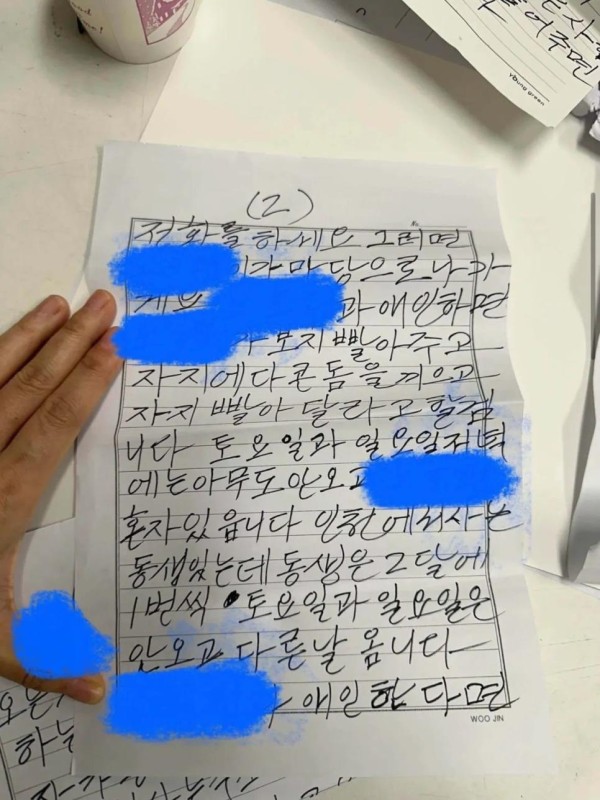 (2)
전화를하세요 그러면
이가마당으로나가
과애인하면
보지빨아주고
자지에다콘돔을끼우고
자지빨아달라고할겁
니다 토요일과 일요일저녁
에는아무도안오고
혼자있읍니다 인천에서사는
동생있는데동생은2달에
1번씩 토요일과 일요일은
안오고 다른날 옵니다
애인한다면
WOO JIN
어주면
young green